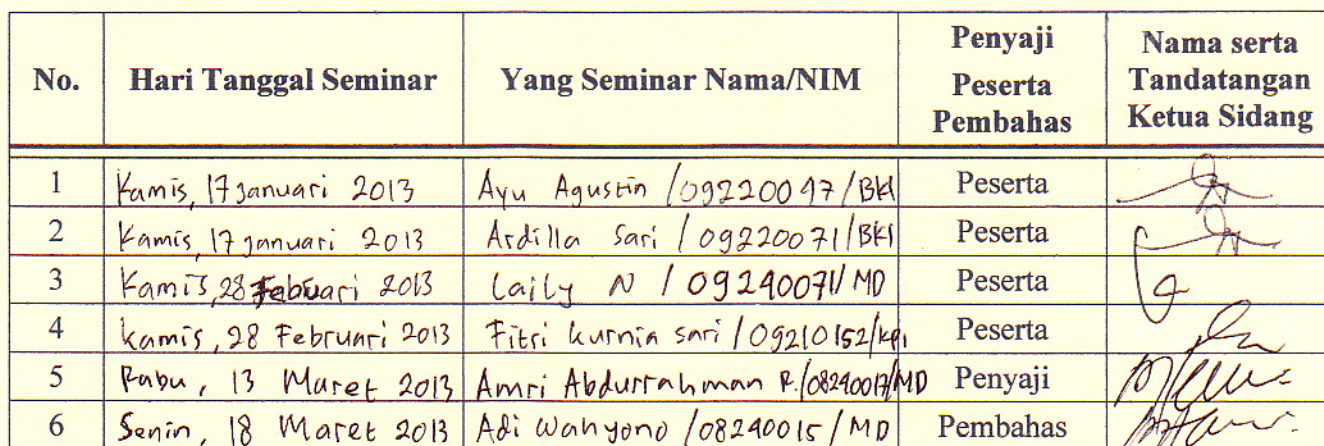 No. Hari Tanggal Seminar Yang Seminar Nama/NIM Penyaji Peserta Pembahas Nama serta Tandatangan Ketua Sidang
1 Kamis, 17 Januari 2013 Ayu Agustin /09220097/BKI Peserta
2 Kamis, 17 Januari 2013 Ardilla Sari / 09220071/BKI Peserta
3 Kamis, 28 Febuari 2013 Laily N / 09240071/ MD Peserta
4 Kamis, 28 Februari 2013 Fitri kurnia sari /09210152/kpi Peserta
5 Rabu, 13 Maret 2013 Amri Abdurrahman R./08240017/MD Penyaji
6 Senin, 18 Maret 2013 Adi Wahyono /08240015 / MD Pembahas